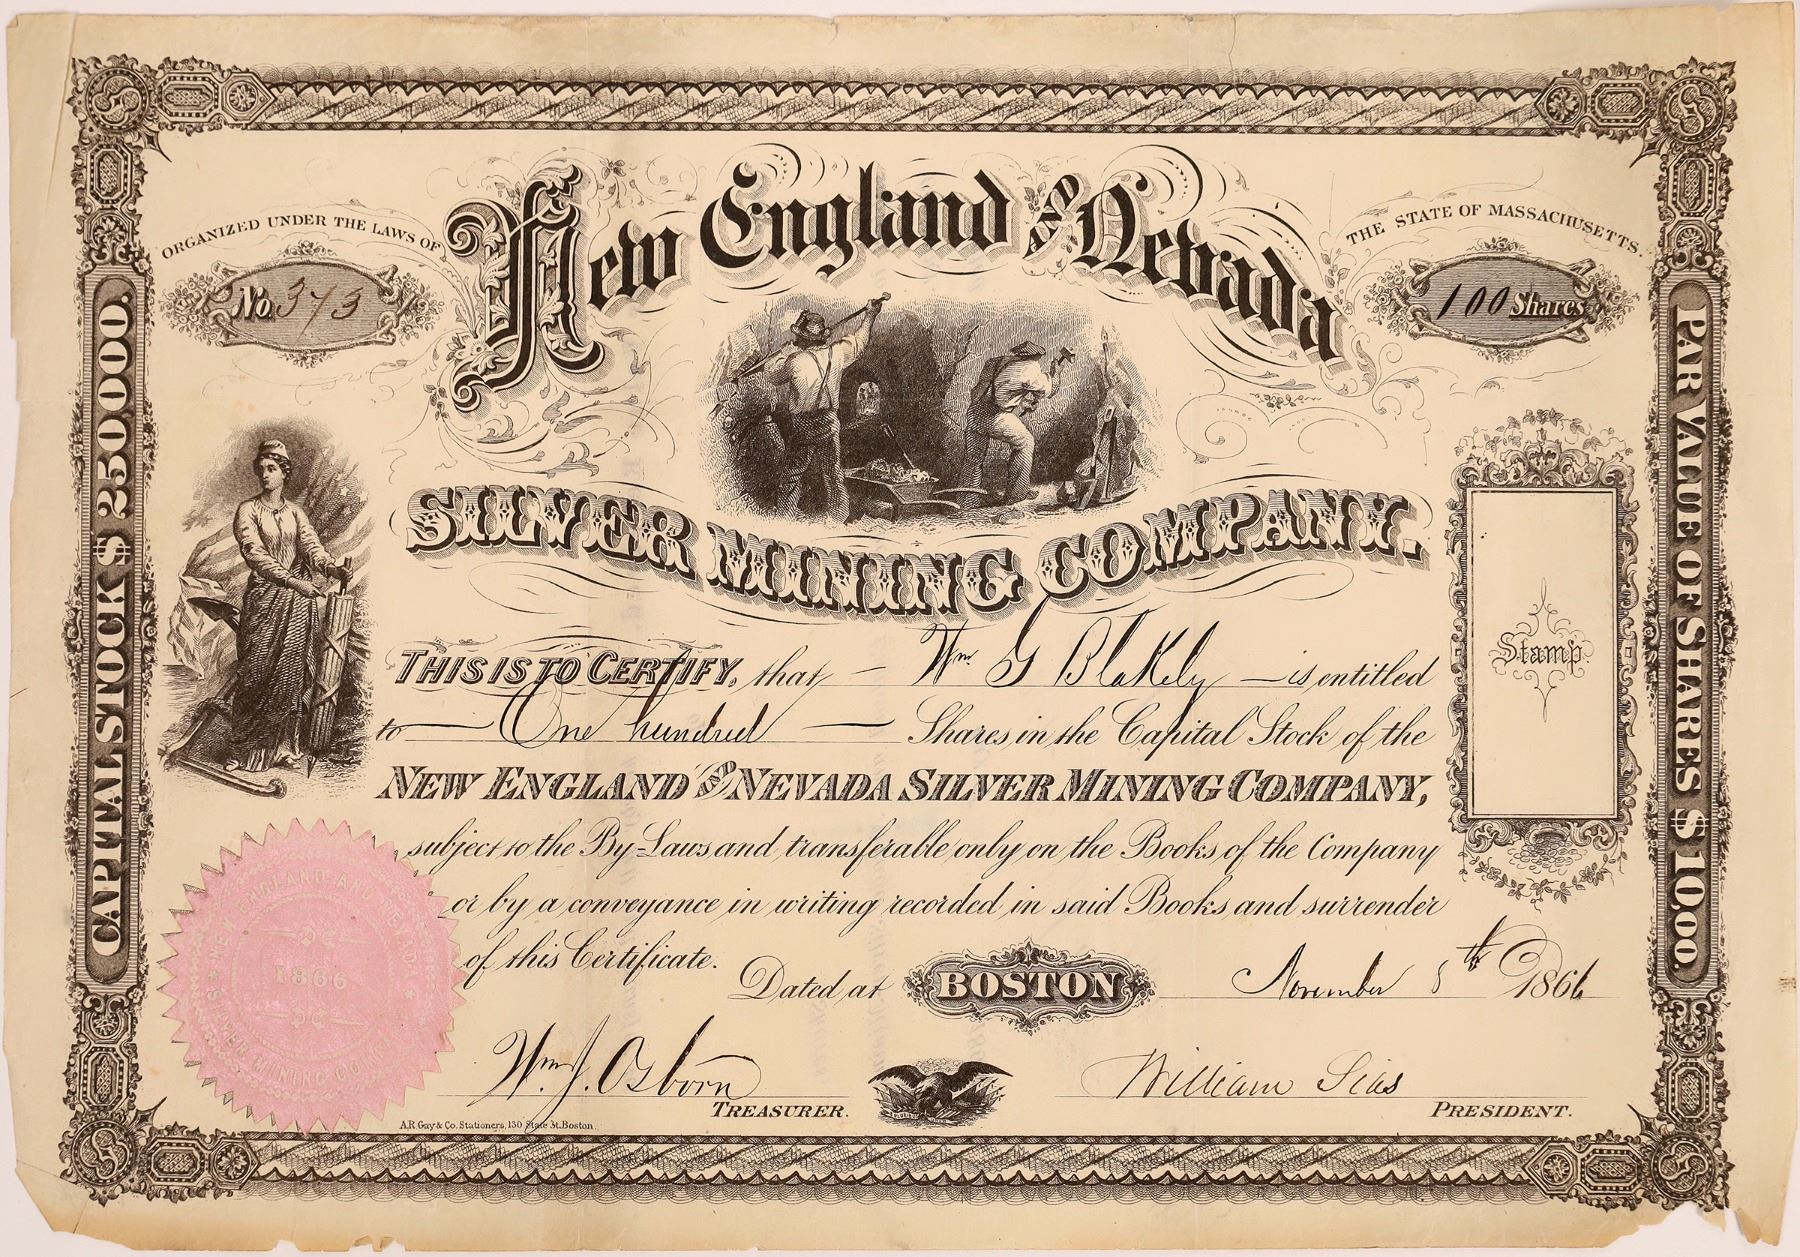 ORGANIZED UNDER THE LAWS OF
THE STATE OF MASSACHUSETTS.
No. 373
100 Shares
New England AND Nevada
SILVER MINING COMPANY.
CAPITAL STOCK $ 250,000.
PAR VALUE OF SHARES $ 10,00.
Stamp.
THIS IS TO CERTIFY, that Wm G Blakely is entitled
to One hundred Shares in the Capital Stock of the
NEW ENGLAND AND NEVADA SILVER MINING COMPANY,
subject to the By-Laws and transferable only on the Books of the Company
or by a conveyance in writing recorded in said Books and surrender
of this Certificate.
Dated at BOSTON November 5th 1866
NEW ENGLAND AND NEVADA
1866
SILVER MINING COMP.
Wm. J. Osborn
TREASURER.
William Sias
PRESIDENT.
A.R. Gay & Co. Stationers, 130 State St. Boston